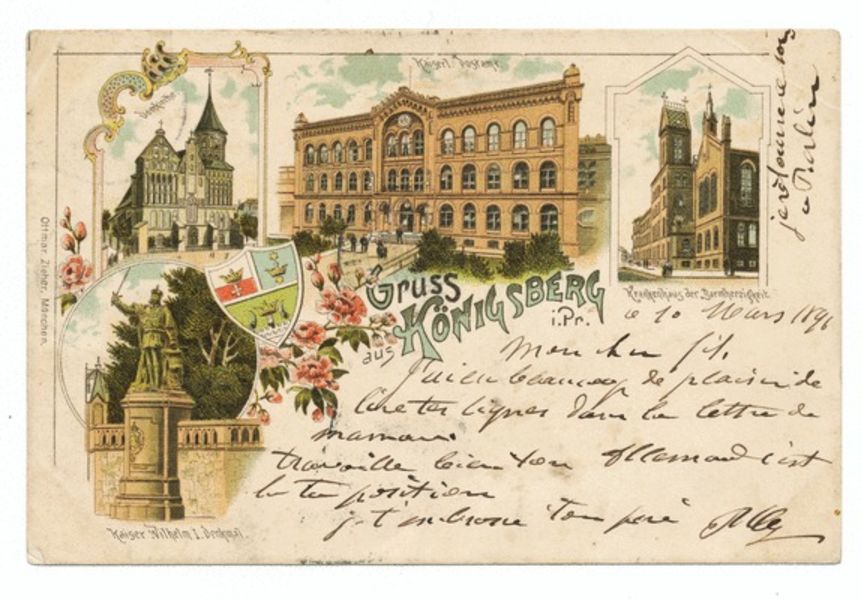 Domkirche
Kaiserl. Postamt
Krankenhaus der Barmherzigkeit.
Ottmar Zieher, München.
Gruss
aus KÖNIGSBERG
i. Pr.
Kaiser Wilhelm I. Denkmal.
10 Mars 1896
Mon cher fils,
J'ai eu beaucoup de plaisir de
lire tes lignes dans la lettre de
maman.
travaille bien ton Allemand c'est
la ta position
je t'embrasse ton père
je retourne
a Berlin